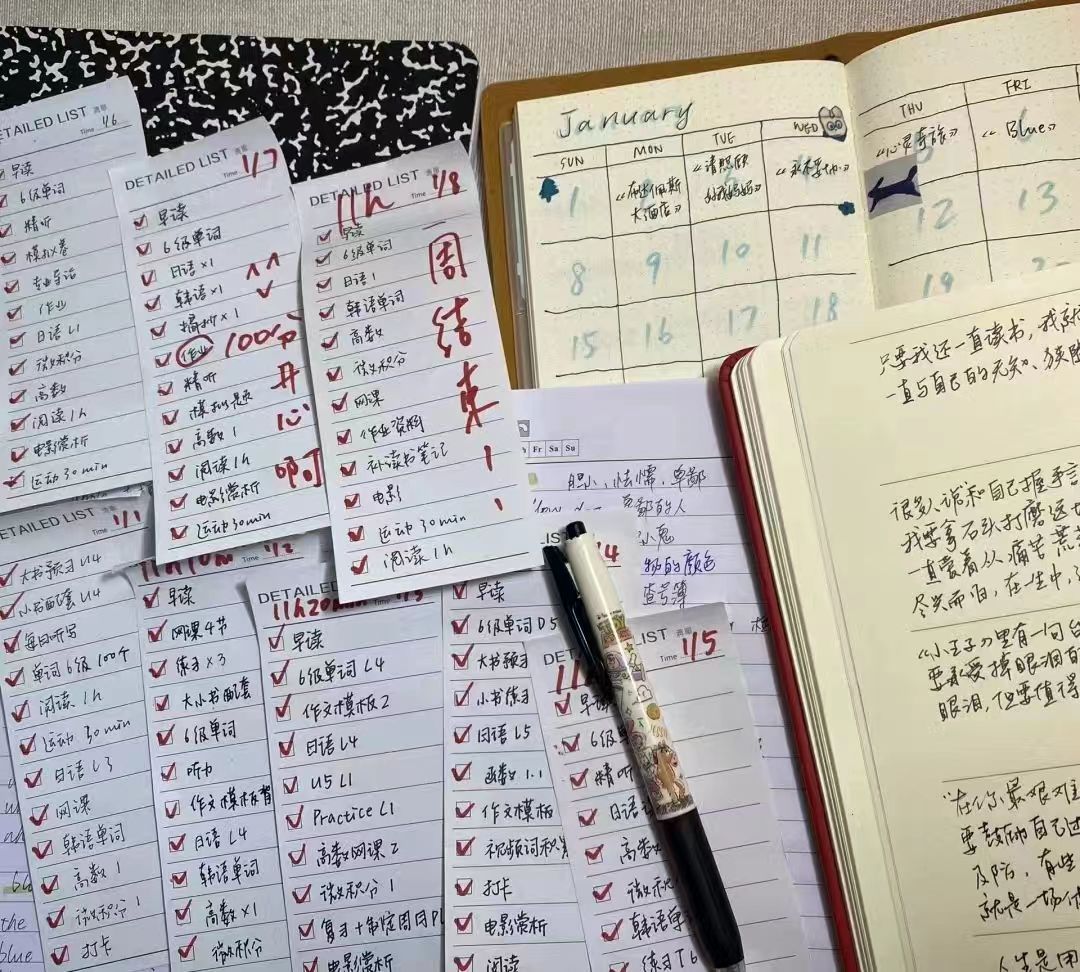 DETAILED LIST 清单
Time 1/6
早读
6级单词
精听
模拟卷
专业导论
作业
日语 L1
微积分
高数
阅读 1h
电影赏析
运动 30 min
DETAILED LIST 清单
Time 1/7
早读
6级单词
日语 ×1
韩语 ×1
摘抄 ×1
作业
100分
精听
模拟题
高数 1
阅读 1h
电影赏析
运动 30 min
开
心
啊
DETAILED LIST 清单
11h
Time 1/8
早读
6级单词
日语 1
韩语单词
高数
微积分
网课
作业资料
补读书笔记
电影
运动 30 min
阅读 1h
周
结
束
DETAILED LIST
1/1
大书预习 U4
小书配套 U4
每日听写
单词6级 100个
阅读 1h
运动 30 min
日语 L3
网课
韩语单词
高数 1
微积分 1
打卡
1/2
早读
网课 4节
练习 ×3
大小书配套
6级单词
听力
作文模板背
日语 L4
韩语单词
高数 ×1
微积分
DETAILED
11h20min
1/3
早读
6级单词 L4
作文模板 2
日语 L4
U5 L1
Practice L1
高数网课 2
微积分 1
电影赏析
LIST
早读
6级单词 D5
大书预习
小书练习
日语 L5
函数 1.1
作文模板
打卡
电影赏析
阅读
LIST 清单
Time 1/5
早读
6级单
精听
日语
高数
微积
韩语单
练习 T6
January
SUN
MON
TUE
WED
THU
FRI
1
《布达佩斯
大酒店》
《请照顾
好我妈妈》
《心灵奇旅》
《Blue》
6
8
9
10
11
12
13
15
16
17
18
19
Fr Sa Su
胆小,怯懦,卑鄙
卑鄙的人
小鬼
物的颜色
the
blue
只要我还一直读书,我就
一直与自己的无知、狭隘
很多人说和自己握手言
我要拿石头打磨这
直爱着从痛苦荒
尽兴而归,在一生中,
《小王子》里有一句台
要承受掉眼泪的
眼泪,但要值得
"在你最艰难
要鼓励自己
及防,有些
就是一场
人生是用